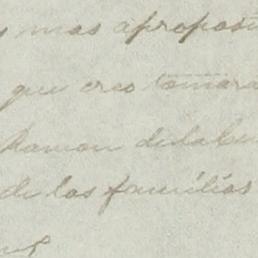 mas aproposi
que creo tomara
Ramon de la
de las familias